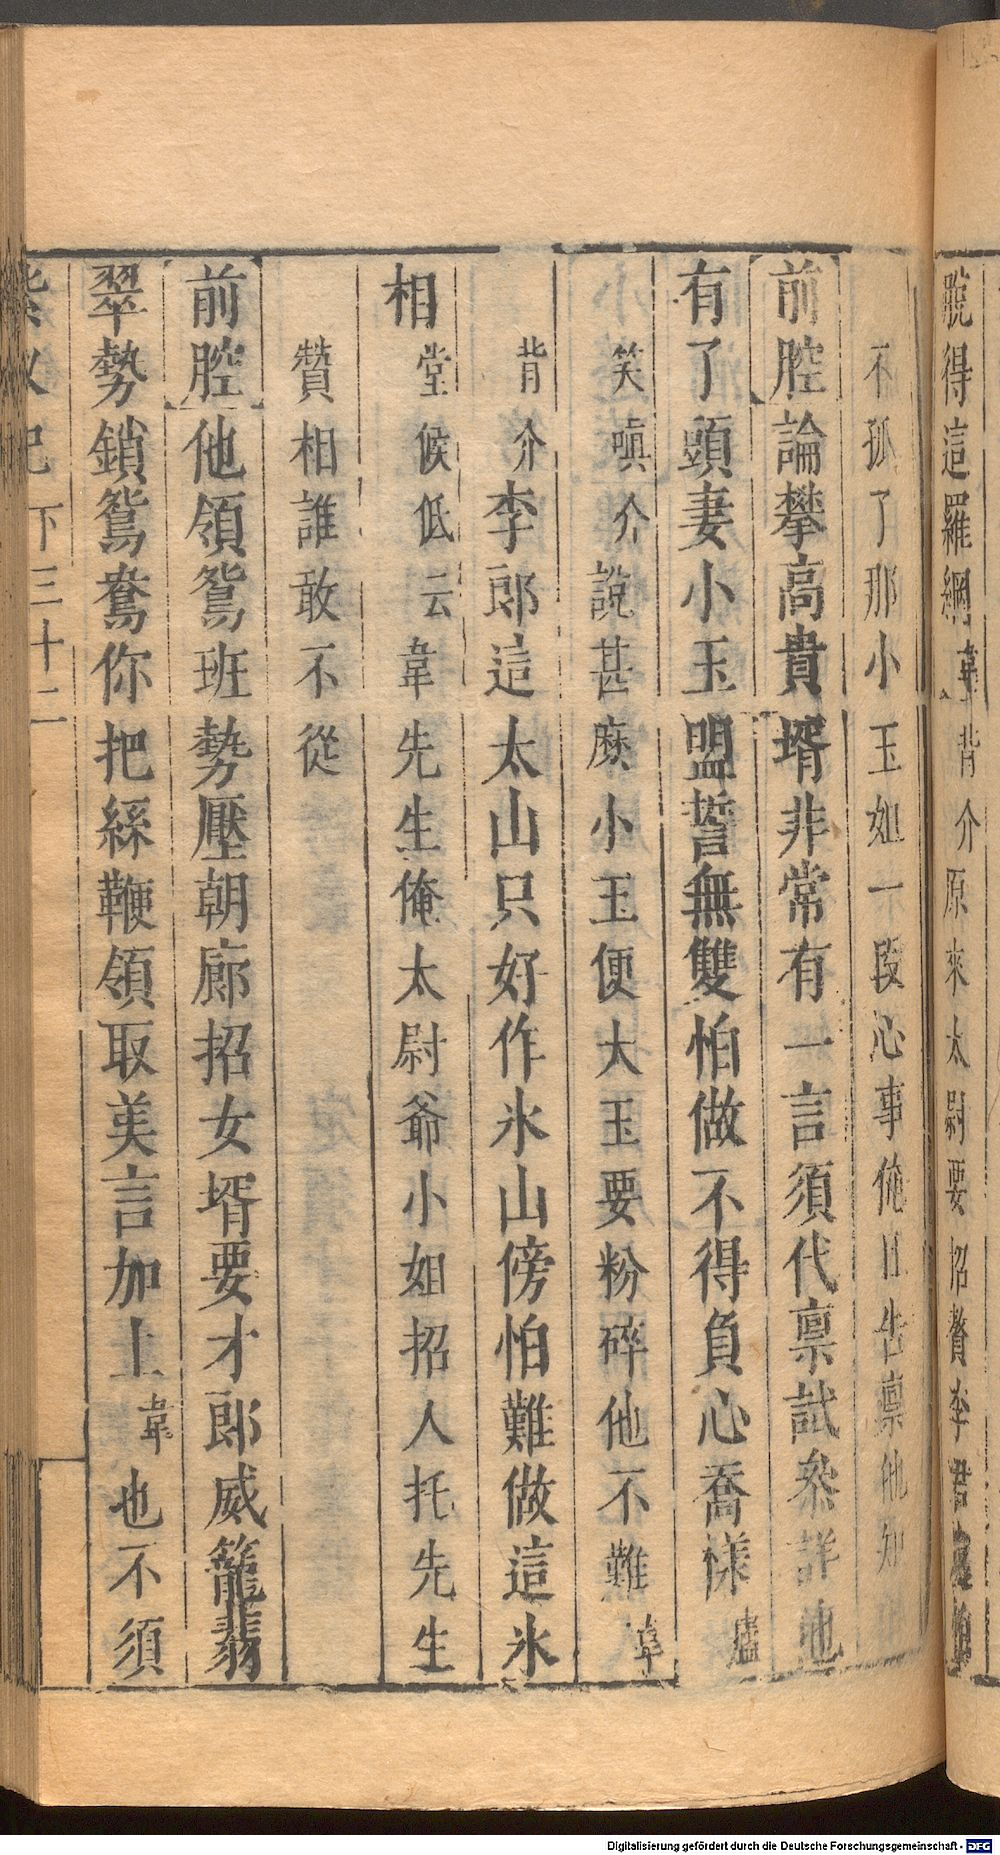 脫得這羅網韋背介原來太尉要招贅李君
不孤了那小玉姐一段心事俺且告稟他知
前腔論攀高貴壻非常有一言須代稟試參詳他
有了頭妻小玉盟誓無雙怕做不得負心喬樣盧
笑嗔介說甚麽小玉便大玉要粉碎他不難韋
背介李郎這太山只好作氷山傍怕難做這氷
相堂候低云韋先生俺太尉爺小姐招人托先生
贊相誰敢不從
前腔他領鴛班勢壓朝廊招女壻要才郎威籠翡
翠勢鎖鴛鴦你把絲鞭領取美言加上韋也不須
紫釵記下三十二
Digitalisierung gefördert durch die Deutsche Forschungsgemeinschaft - DFG